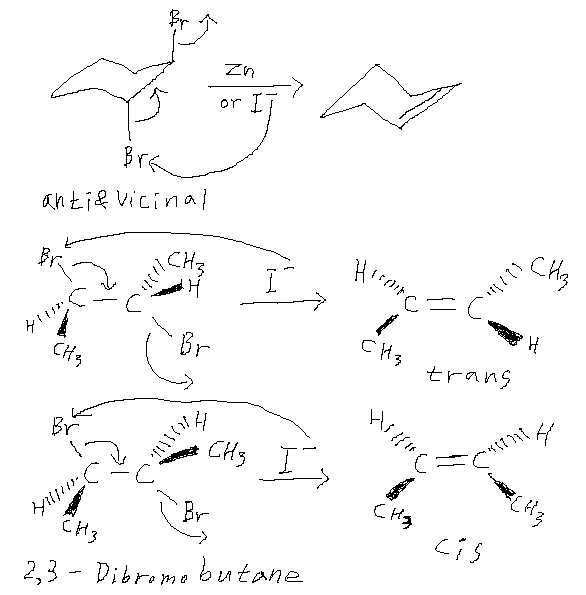 Br
Zn
or I⁻
Br
anti & vicinal
Br CH3
H
I⁻
H C — C
CH3 Br
H CH3
C = C
CH3 H
trans
Br H
CH3
I⁻
H C — C
CH3 Br
H H
C = C
CH3 CH3
cis
2,3 - Dibromobutane